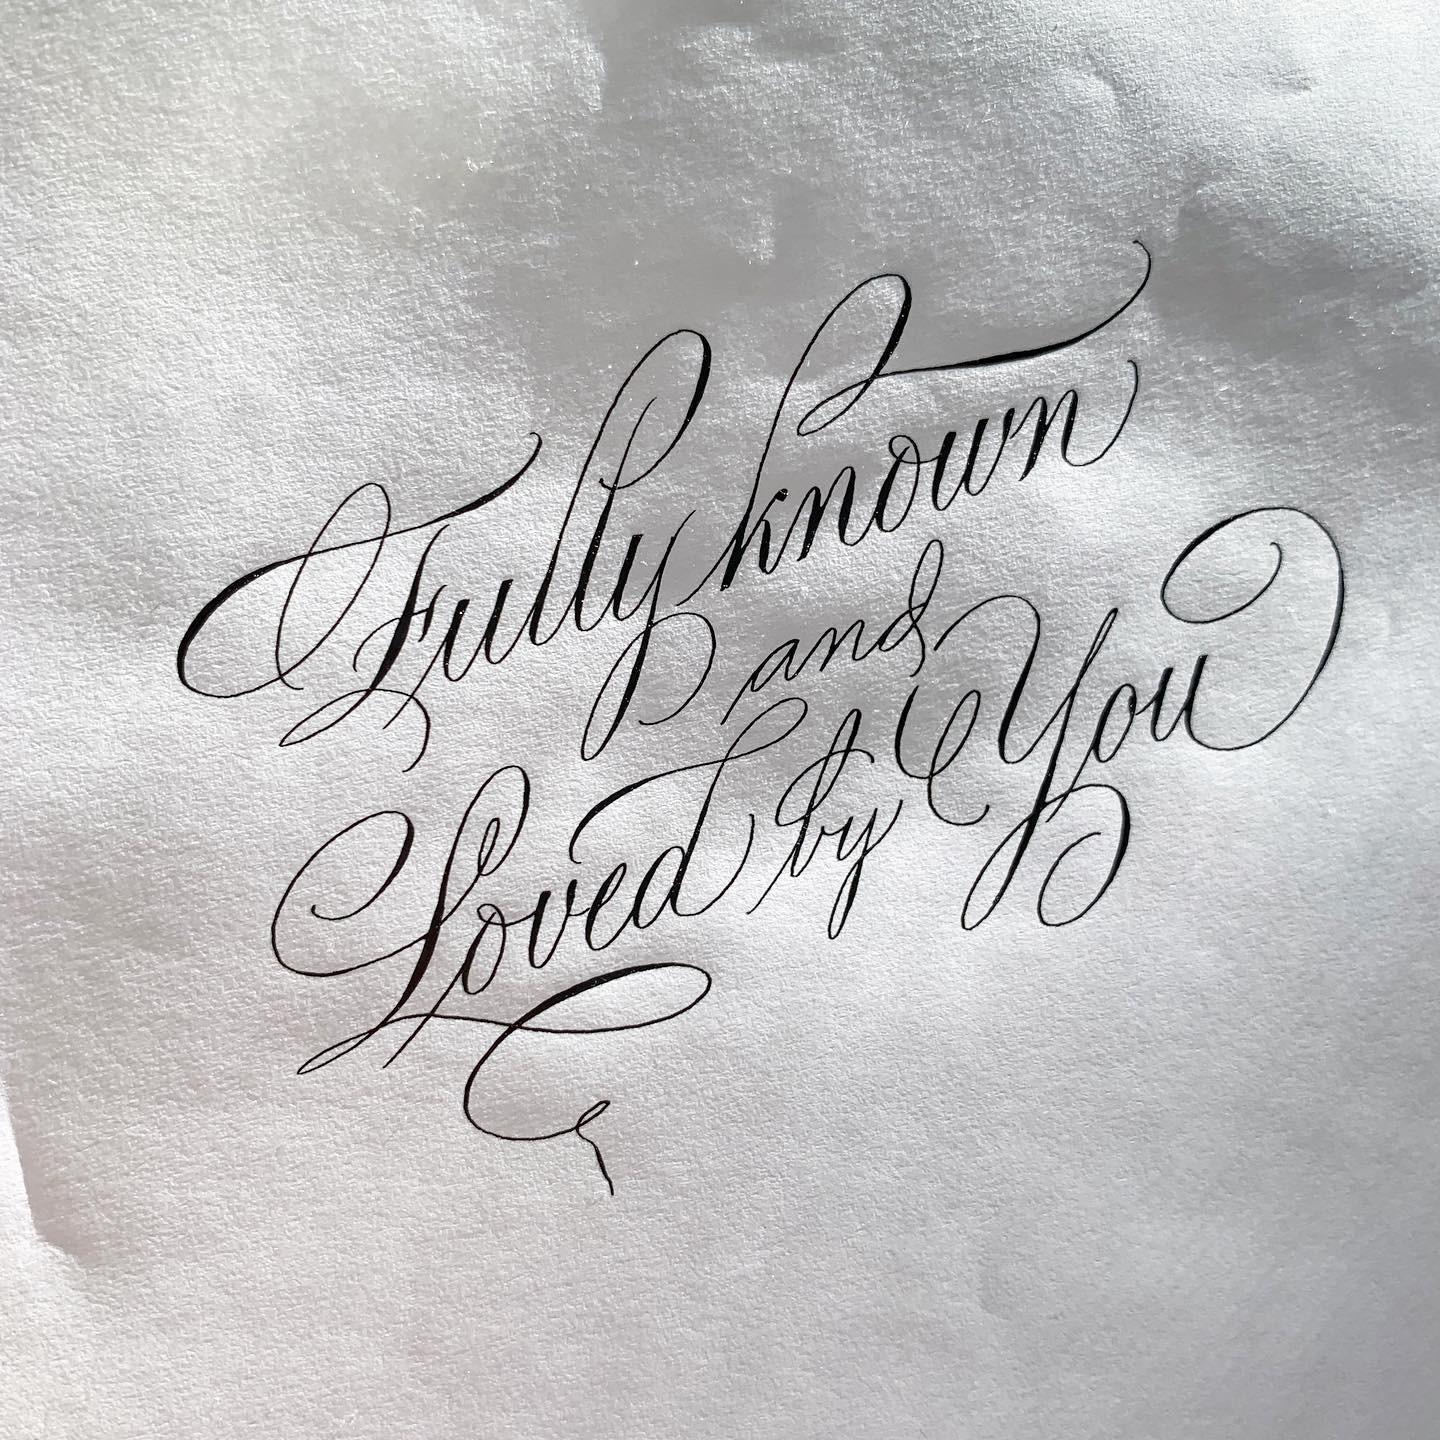 Fully known
and
Loved by You